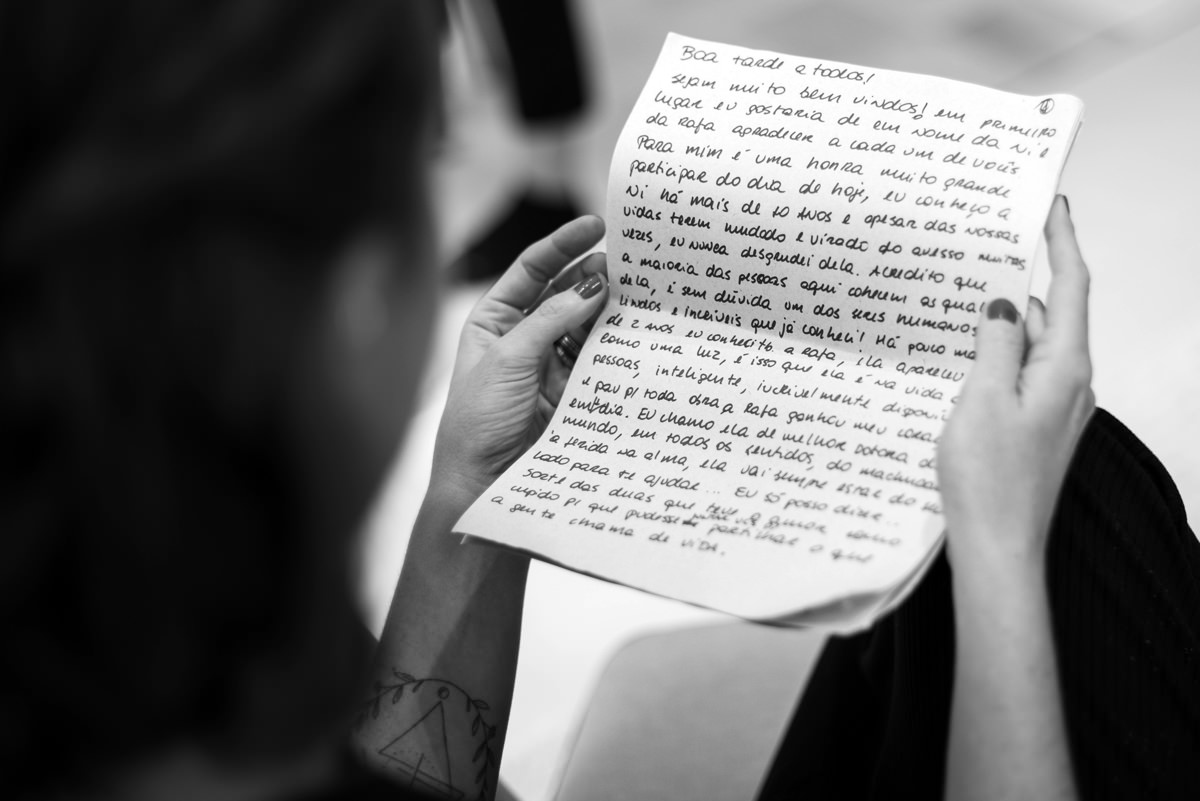 Boa tarde a todos!
①
sejam muito bem vindos! em primeiro
lugar eu gostaria de em nome da Ni e
da Rafa agradecer a cada um de vocês
Para mim é uma honra muito grande
participar do dia de hoje, eu conheço a
Ni há mais de 10 anos e apesar das nossas
vidas terem mudado e virado do avesso muitas
vezes, eu nunca desgrudei dela. Acredito que
a maioria das pessoas aqui conhecem as qual
dela, é sem dúvida um dos seres humanos
lindos e incríveis que já conheci! Há pouco ma
de 2 anos eu conheci a Rafa, ela apareceu
como uma luz, é isso que ela é na vida d
pessoas, inteligente, incrivelmente disponív
e pau p/ toda obra a Rafa ganhou meu coraç
em dia. Eu chamo ela de melhor dotora do
mundo, em todos os sentidos, do machucado
à ferida na alma, ela vai sempre estar do seu
lado para te ajudar... Eu só posso dizer...
sorte das duas que teve o amor como
cupido p/ que pudessem partilhar o que
a gente chama de vida.